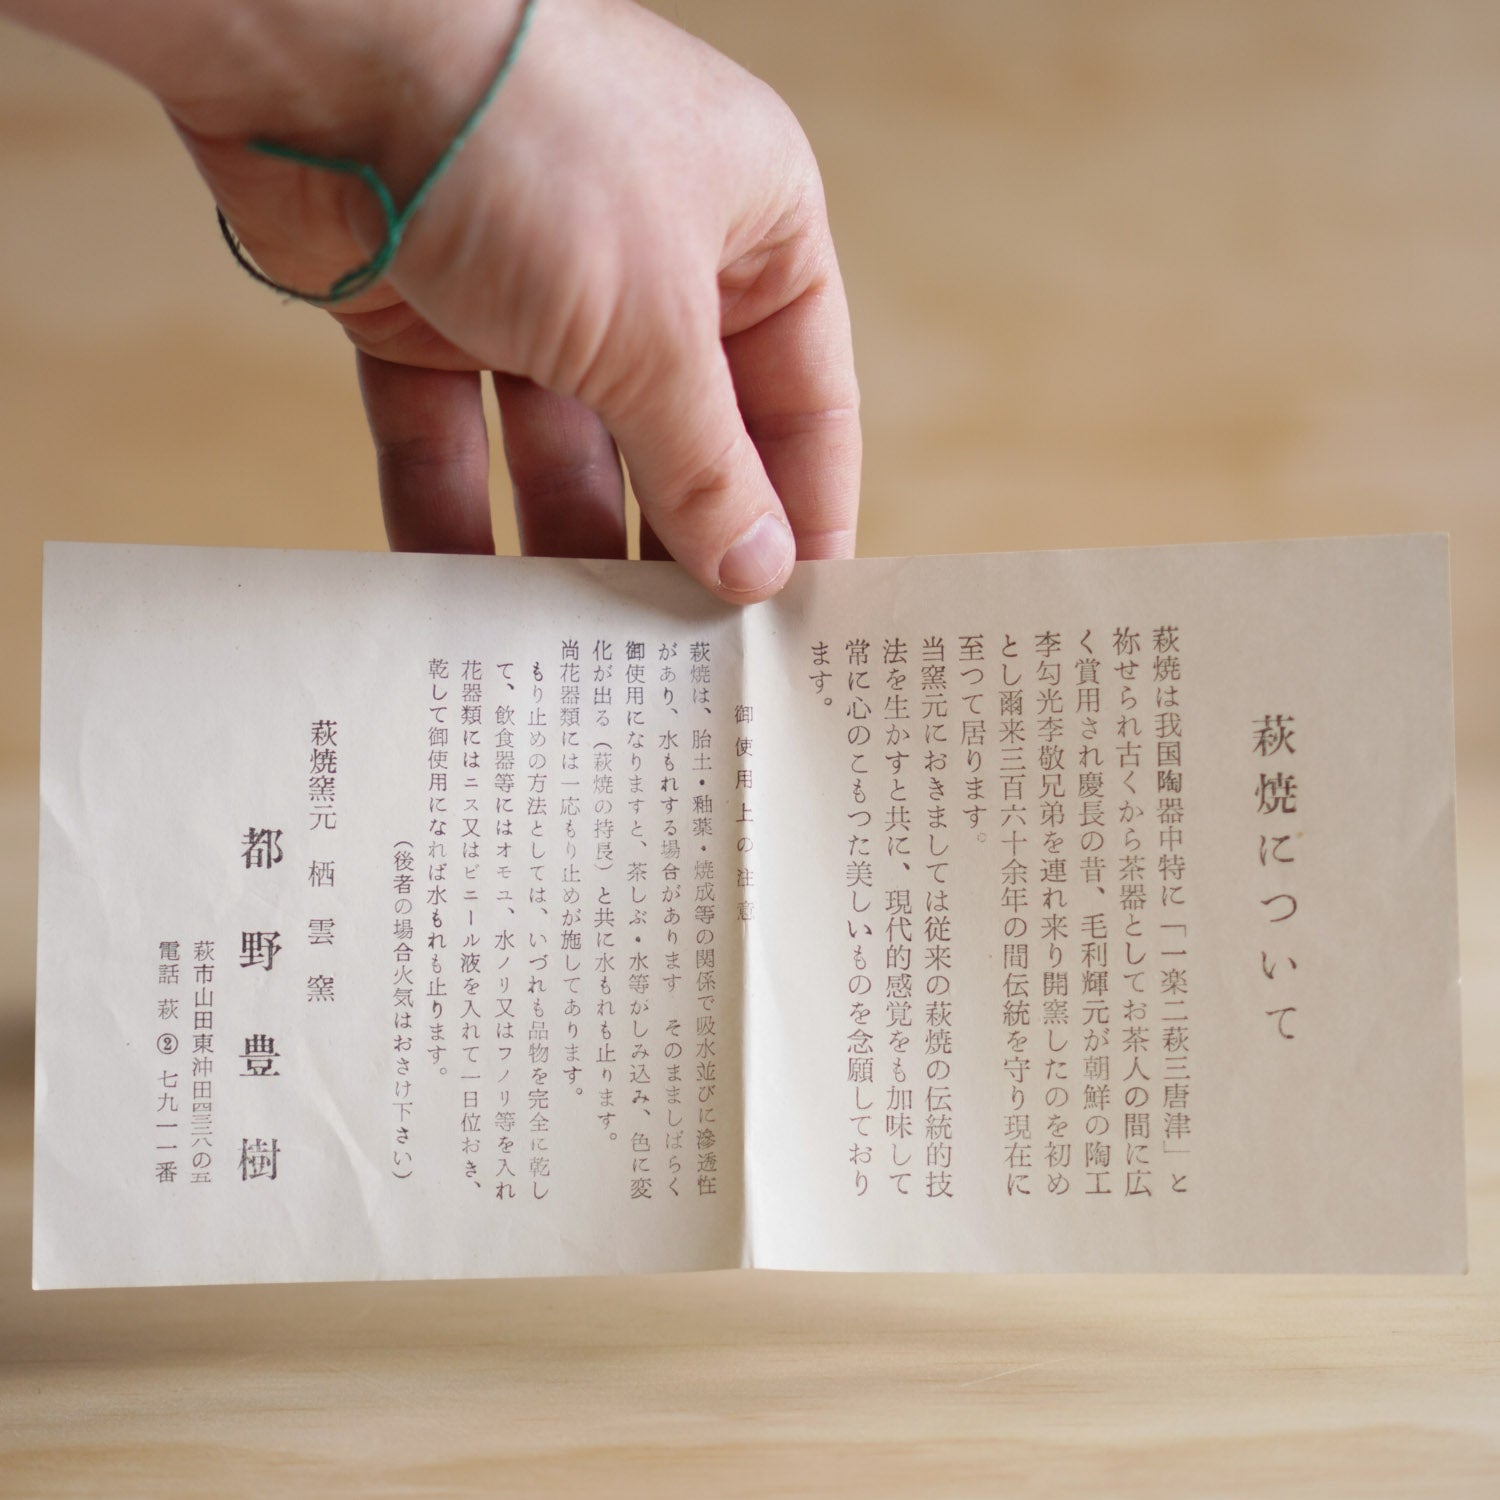 萩焼について
萩焼は我国陶器中特に「一楽二萩三唐津」と
祢せられ古くから茶器としてお茶人の間に広
く賞用され慶長の昔、毛利輝元が朝鮮の陶工
李勾光李敬兄弟を連れ来り開窯したのを初め
とし爾来三百六十余年の間伝統を守り現在に
至つて居ります。
当窯元におきましては従来の萩焼の伝統的技
法を生かすと共に、現代的感覚をも加味して
常に心のこもつた美しいものを念願しており
ます。
御使用上の注意
萩焼は、胎土・釉薬・焼成等の関係で吸水並びに滲透性
があり、水もれする場合があります　そのまましばらく
御使用になりますと、茶しぶ・水等がしみ込み、色に変
化が出る（萩焼の持長）と共に水もれも止ります。
尚花器類には一応もり止めが施してあります。
もり止めの方法としては、いづれも品物を完全に乾し
て、飲食器等にはオモユ、水ノリ又はフノリ等を入れ
花器類にはニス又はビニール液を入れて一日位おき、
乾して御使用になれば水もれも止ります。
（後者の場合火気はおさけ下さい）
萩焼窯元　栖雲窯
都野豊樹
萩市山田東沖田四三八の五
電話　萩　②　七九一一番